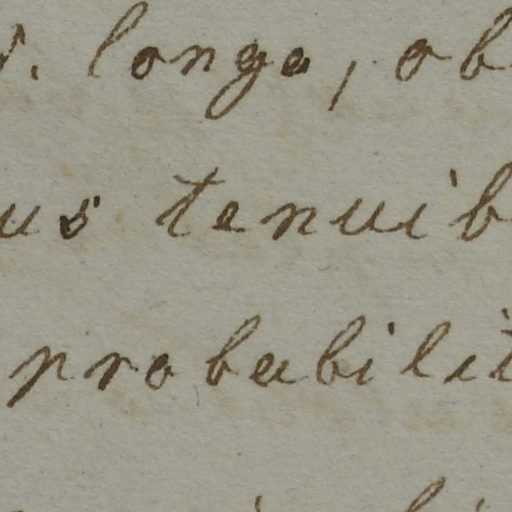 longe, ob
us tenuib
probabilit